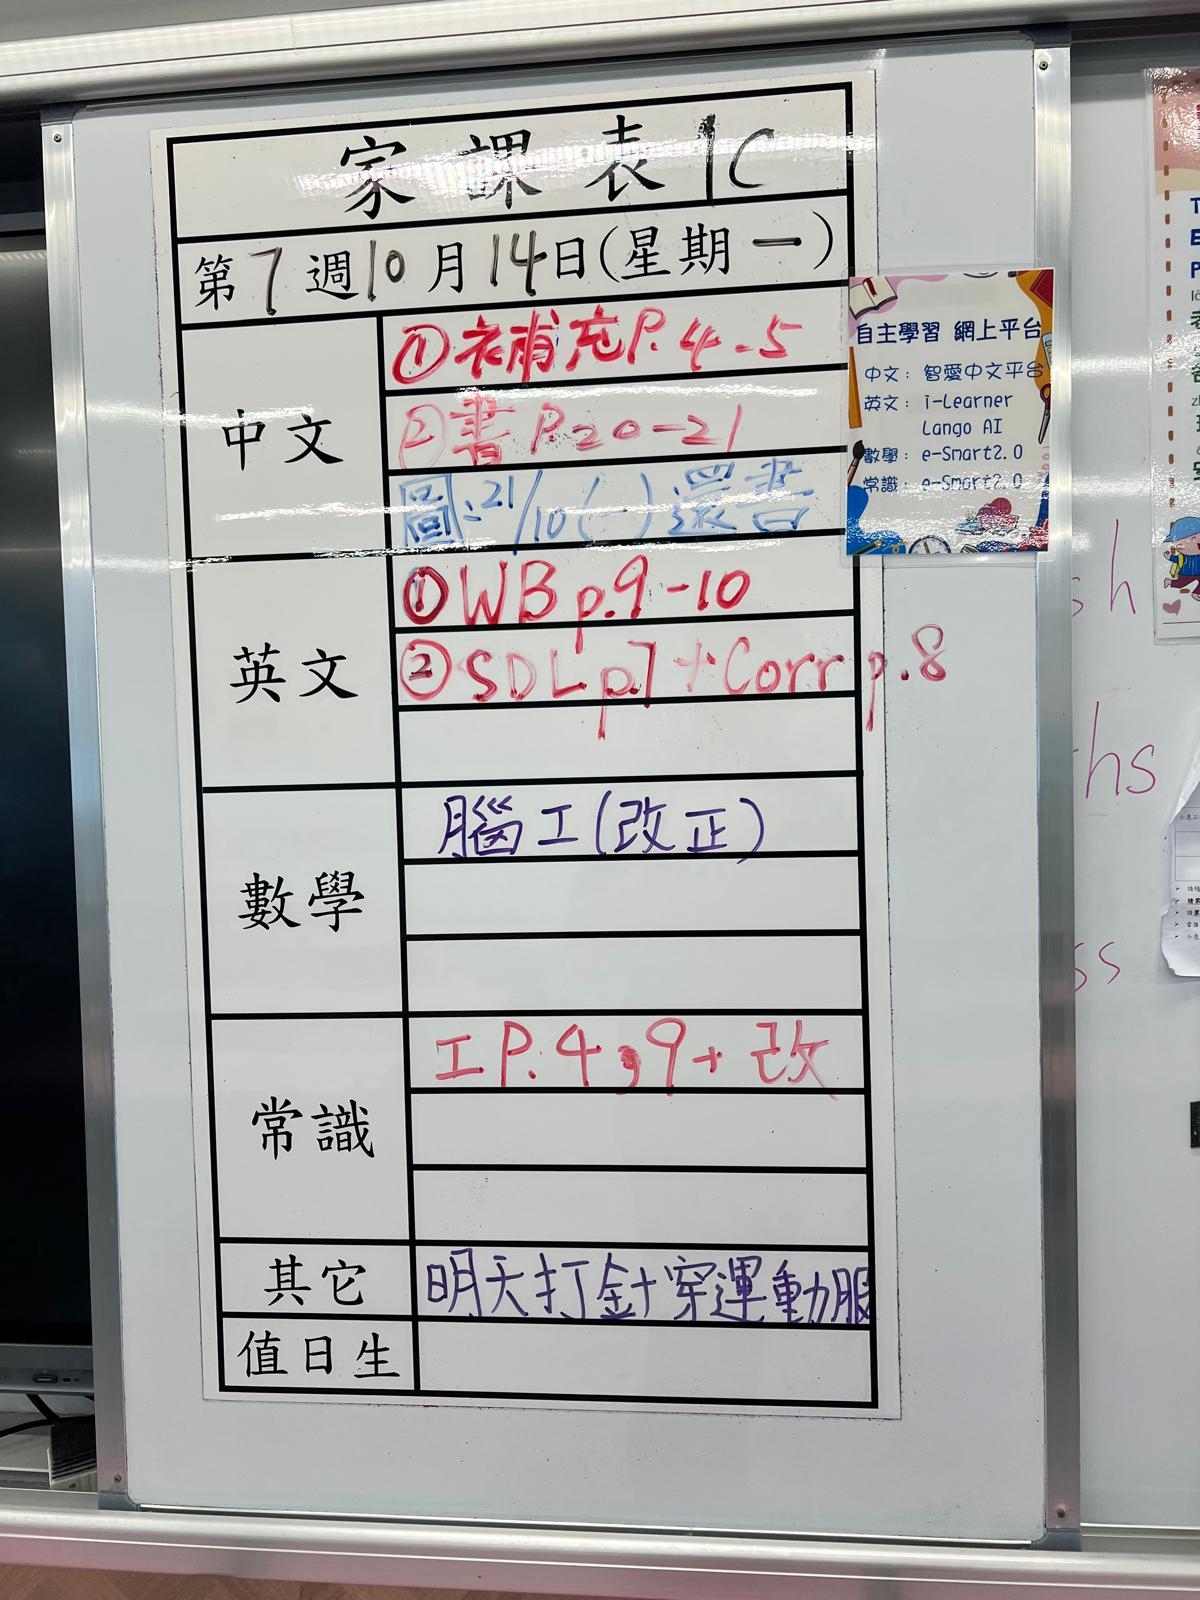 家課表 1C
第7週10月14日(星期一)
中文
①補充P.4-5
②書P.20-21
圖:21/10(一)還書
英文
①WB p.9-10
②SDL p.7 + Corr p.8
數學
腦工(改正)
常識
工P.4,9+改
其它
明天打針穿運動服
值日生
自主學習 網上平台
中文：智愛中文平台
英文：i-Learner
Lango AI
數學：e-Smart2.0
常識：e-Smart2.0
sh
ths
ss